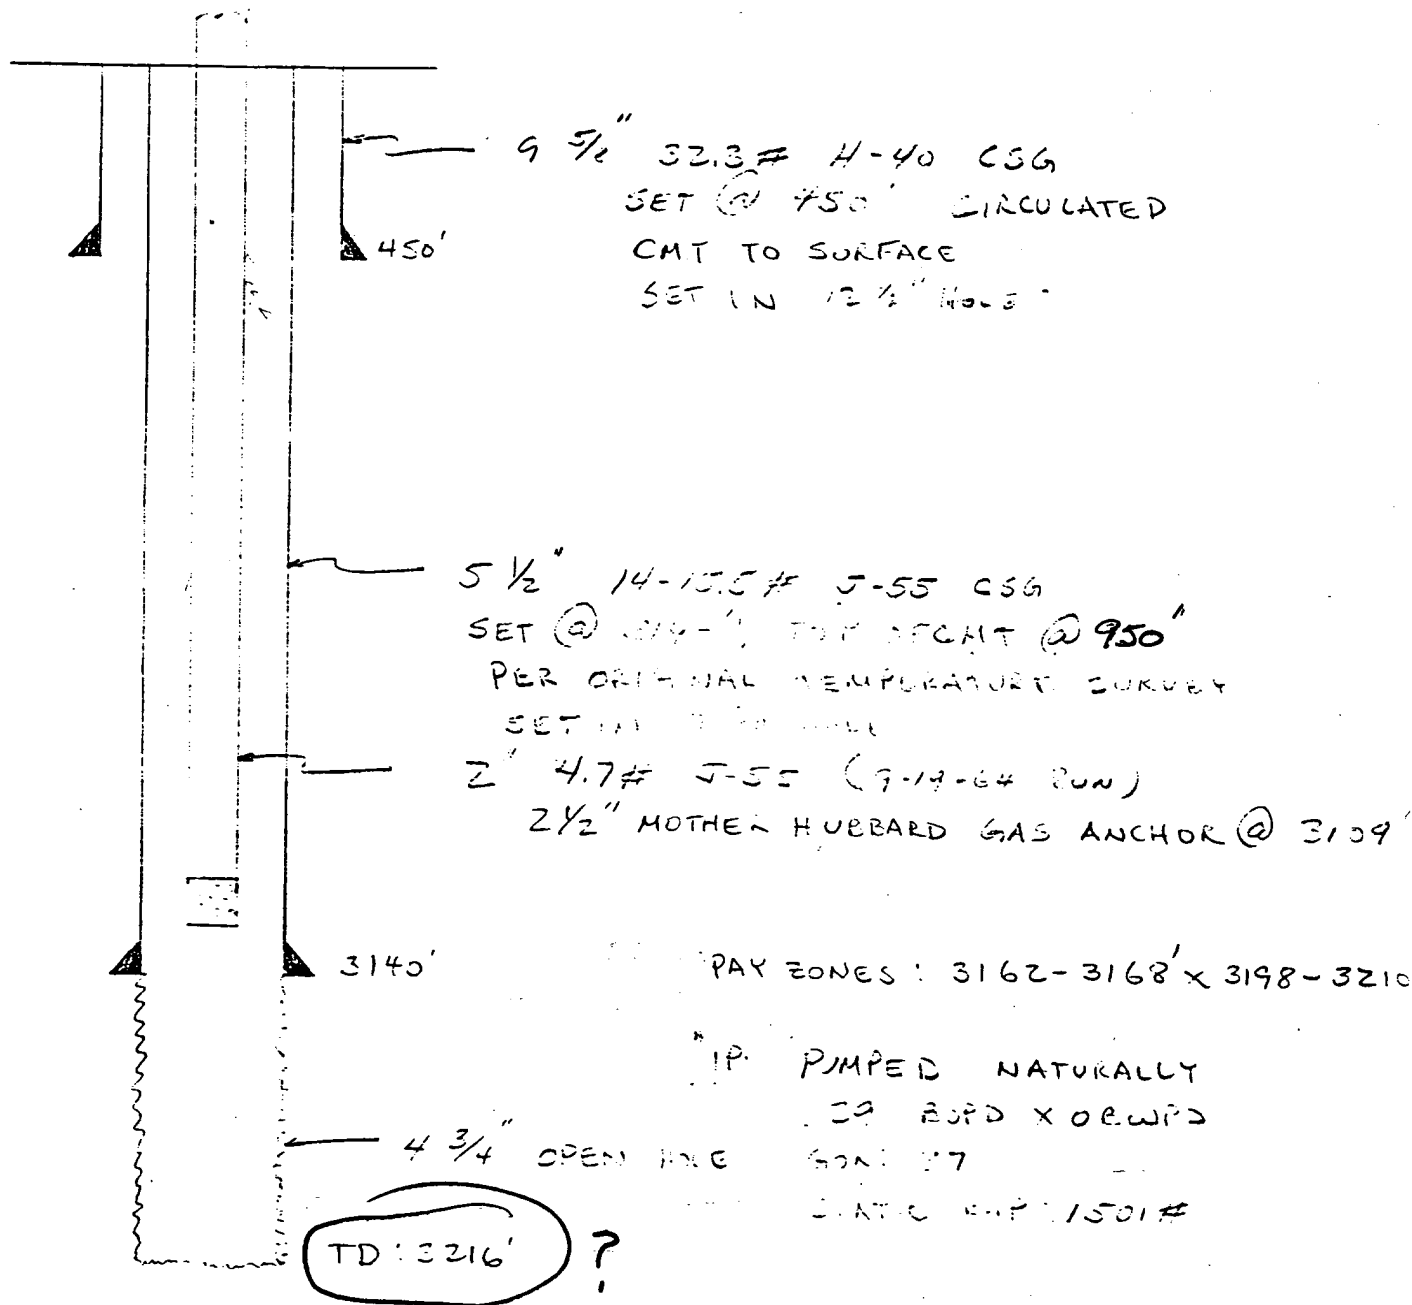 9 5/8" 32.3# H-40 CSG
SET @ 450' CIRCULATED
450'
CMT TO SURFACE
SET IN HOLE
5 1/2" 14-15.5# J-55 CSG
SET @ TOP OF CMT @ 950'
PER ORIGINAL TEMPERATURE SURVEY
SET IN
2" 4.7# J-55 (9-19-64 RUN)
2 1/2" MOTHER HUBBARD GAS ANCHOR @ 3109'
3140'
PAY ZONES: 3162-3168' x 3198-3210
IP. PUMPED NATURALLY
BOPD X 0 BWPD
4 3/4" OPEN HOLE
1501#
TD: 3216' ?